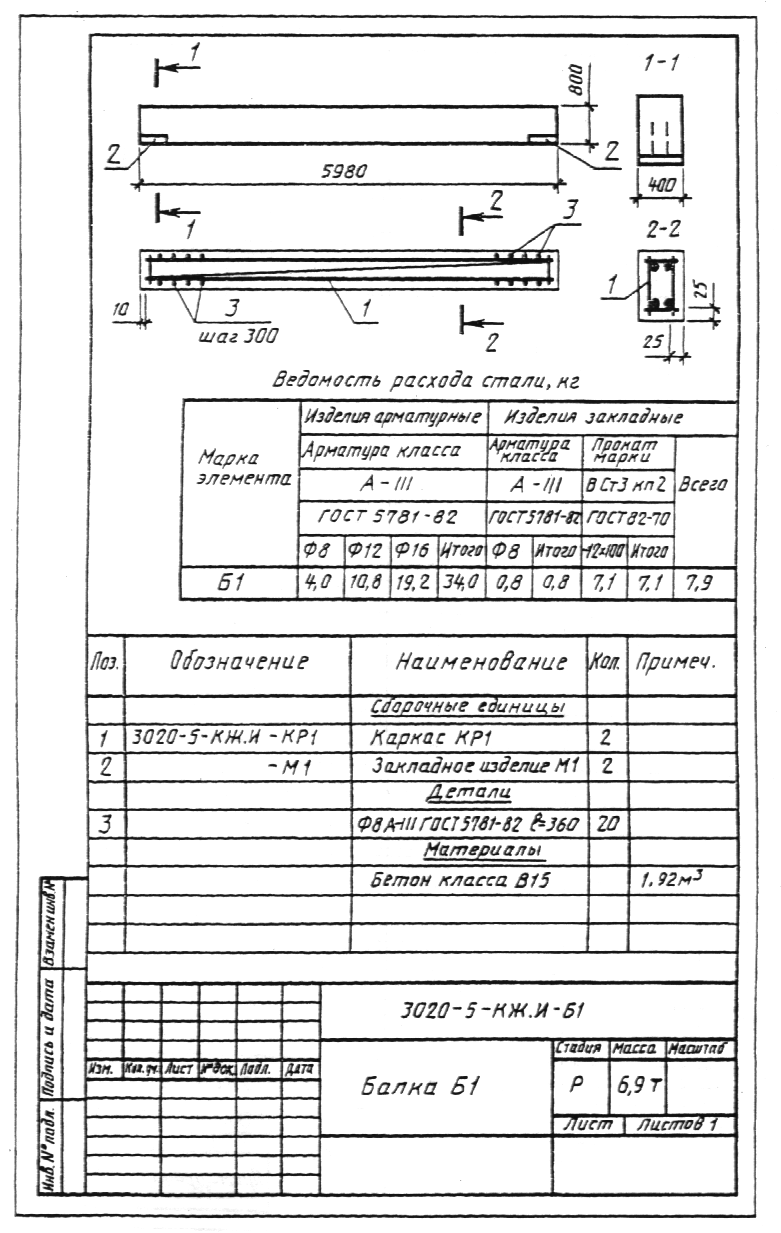 1
1-1
800
2
2
5980
400
1
2
3
2-2
1
10
3
1
шаг 300
2
25
25
Ведомость расхода стали, кг
Марка элемента
Изделия арматурные
Изделия закладные
Арматура класса
Арматура класса
Прокат марки
Всего
А-III
А-III
ВСт3 кп2
ГОСТ 5781-82
ГОСТ 5781-82
ГОСТ 82-70
Ф8 Ф12 Ф16 Итого Ф8 Итого -12×100 Итого
Б1 4,0 10,8 19,2 34,0 0,8 0,8 7,1 7,1 7,9
Поз. Обозначение Наименование Кол. Примеч.
Сборочные единицы
1 3020-5-КЖ.И -КР1 Каркас КР1 2
2 -М1 Закладное изделие М1 2
Детали
3 Ф8 А-III ГОСТ 5781-82 ℓ=360 20
Материалы
Бетон класса В15 1,92м³
3020-5-КЖ.И-Б1
Изм. Кол.уч. Лист №док. Подп. Дата
Балка Б1
Стадия Масса Масштаб
Р 6,9 т
Лист Листов 1
Взамен инв.№
Подпись и дата
Инв. № подл.